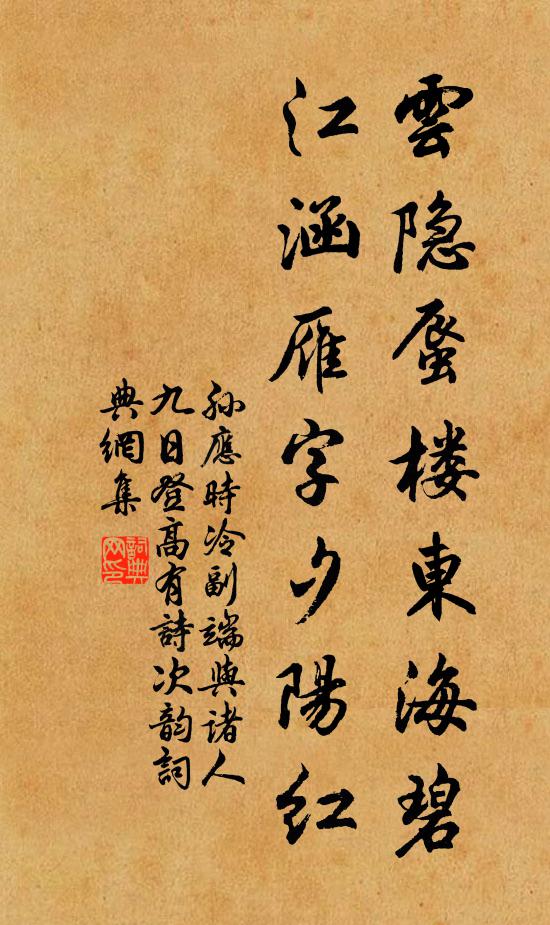 雲隐蜃楼東海碧
江涵雁字夕陽红
孙應時冷副端與诸人
九日登高有詩次韵詞
典網集
詞典
网印